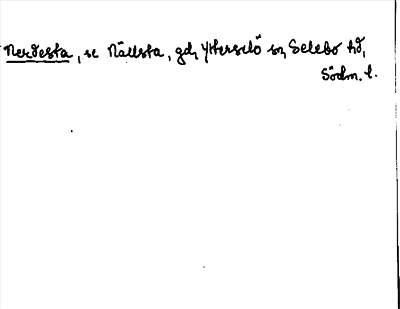 Nerdesta, se Nällsta, gd, Ytterselö sn, Selebo hd,
Södm. l.